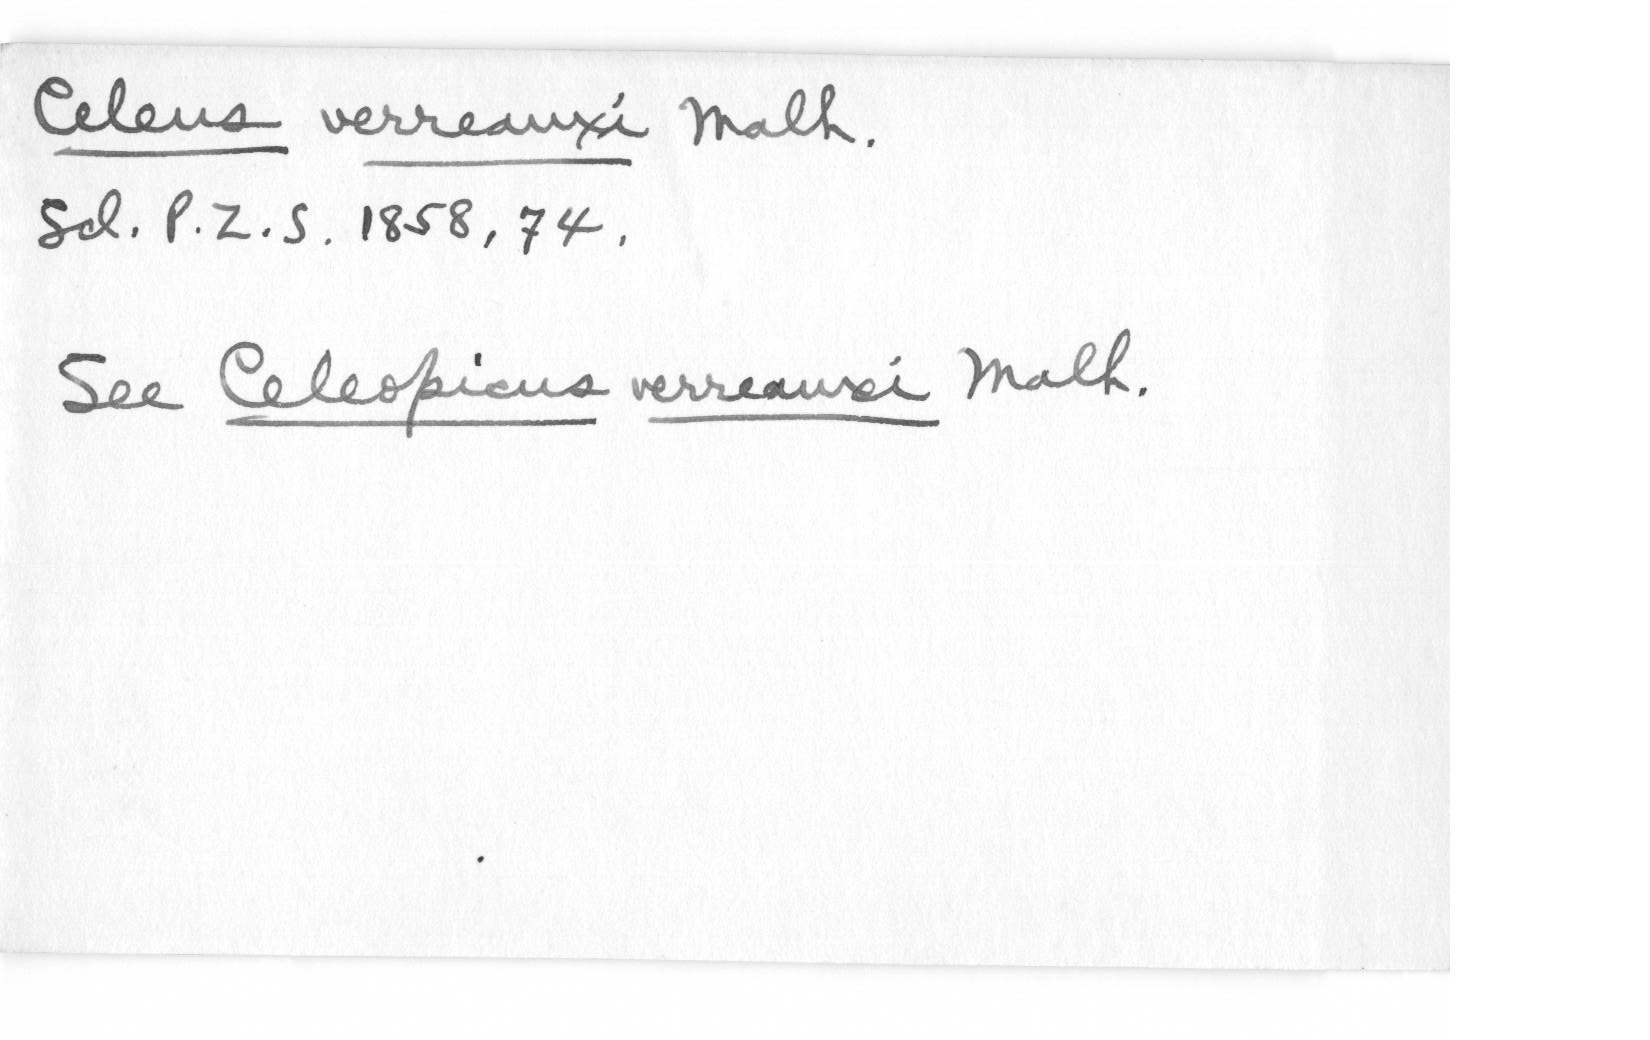 Celeus verreauxi Malh.
Scl. P.Z.S. 1858, 74.
See Celeopicus verreauxi Malh.